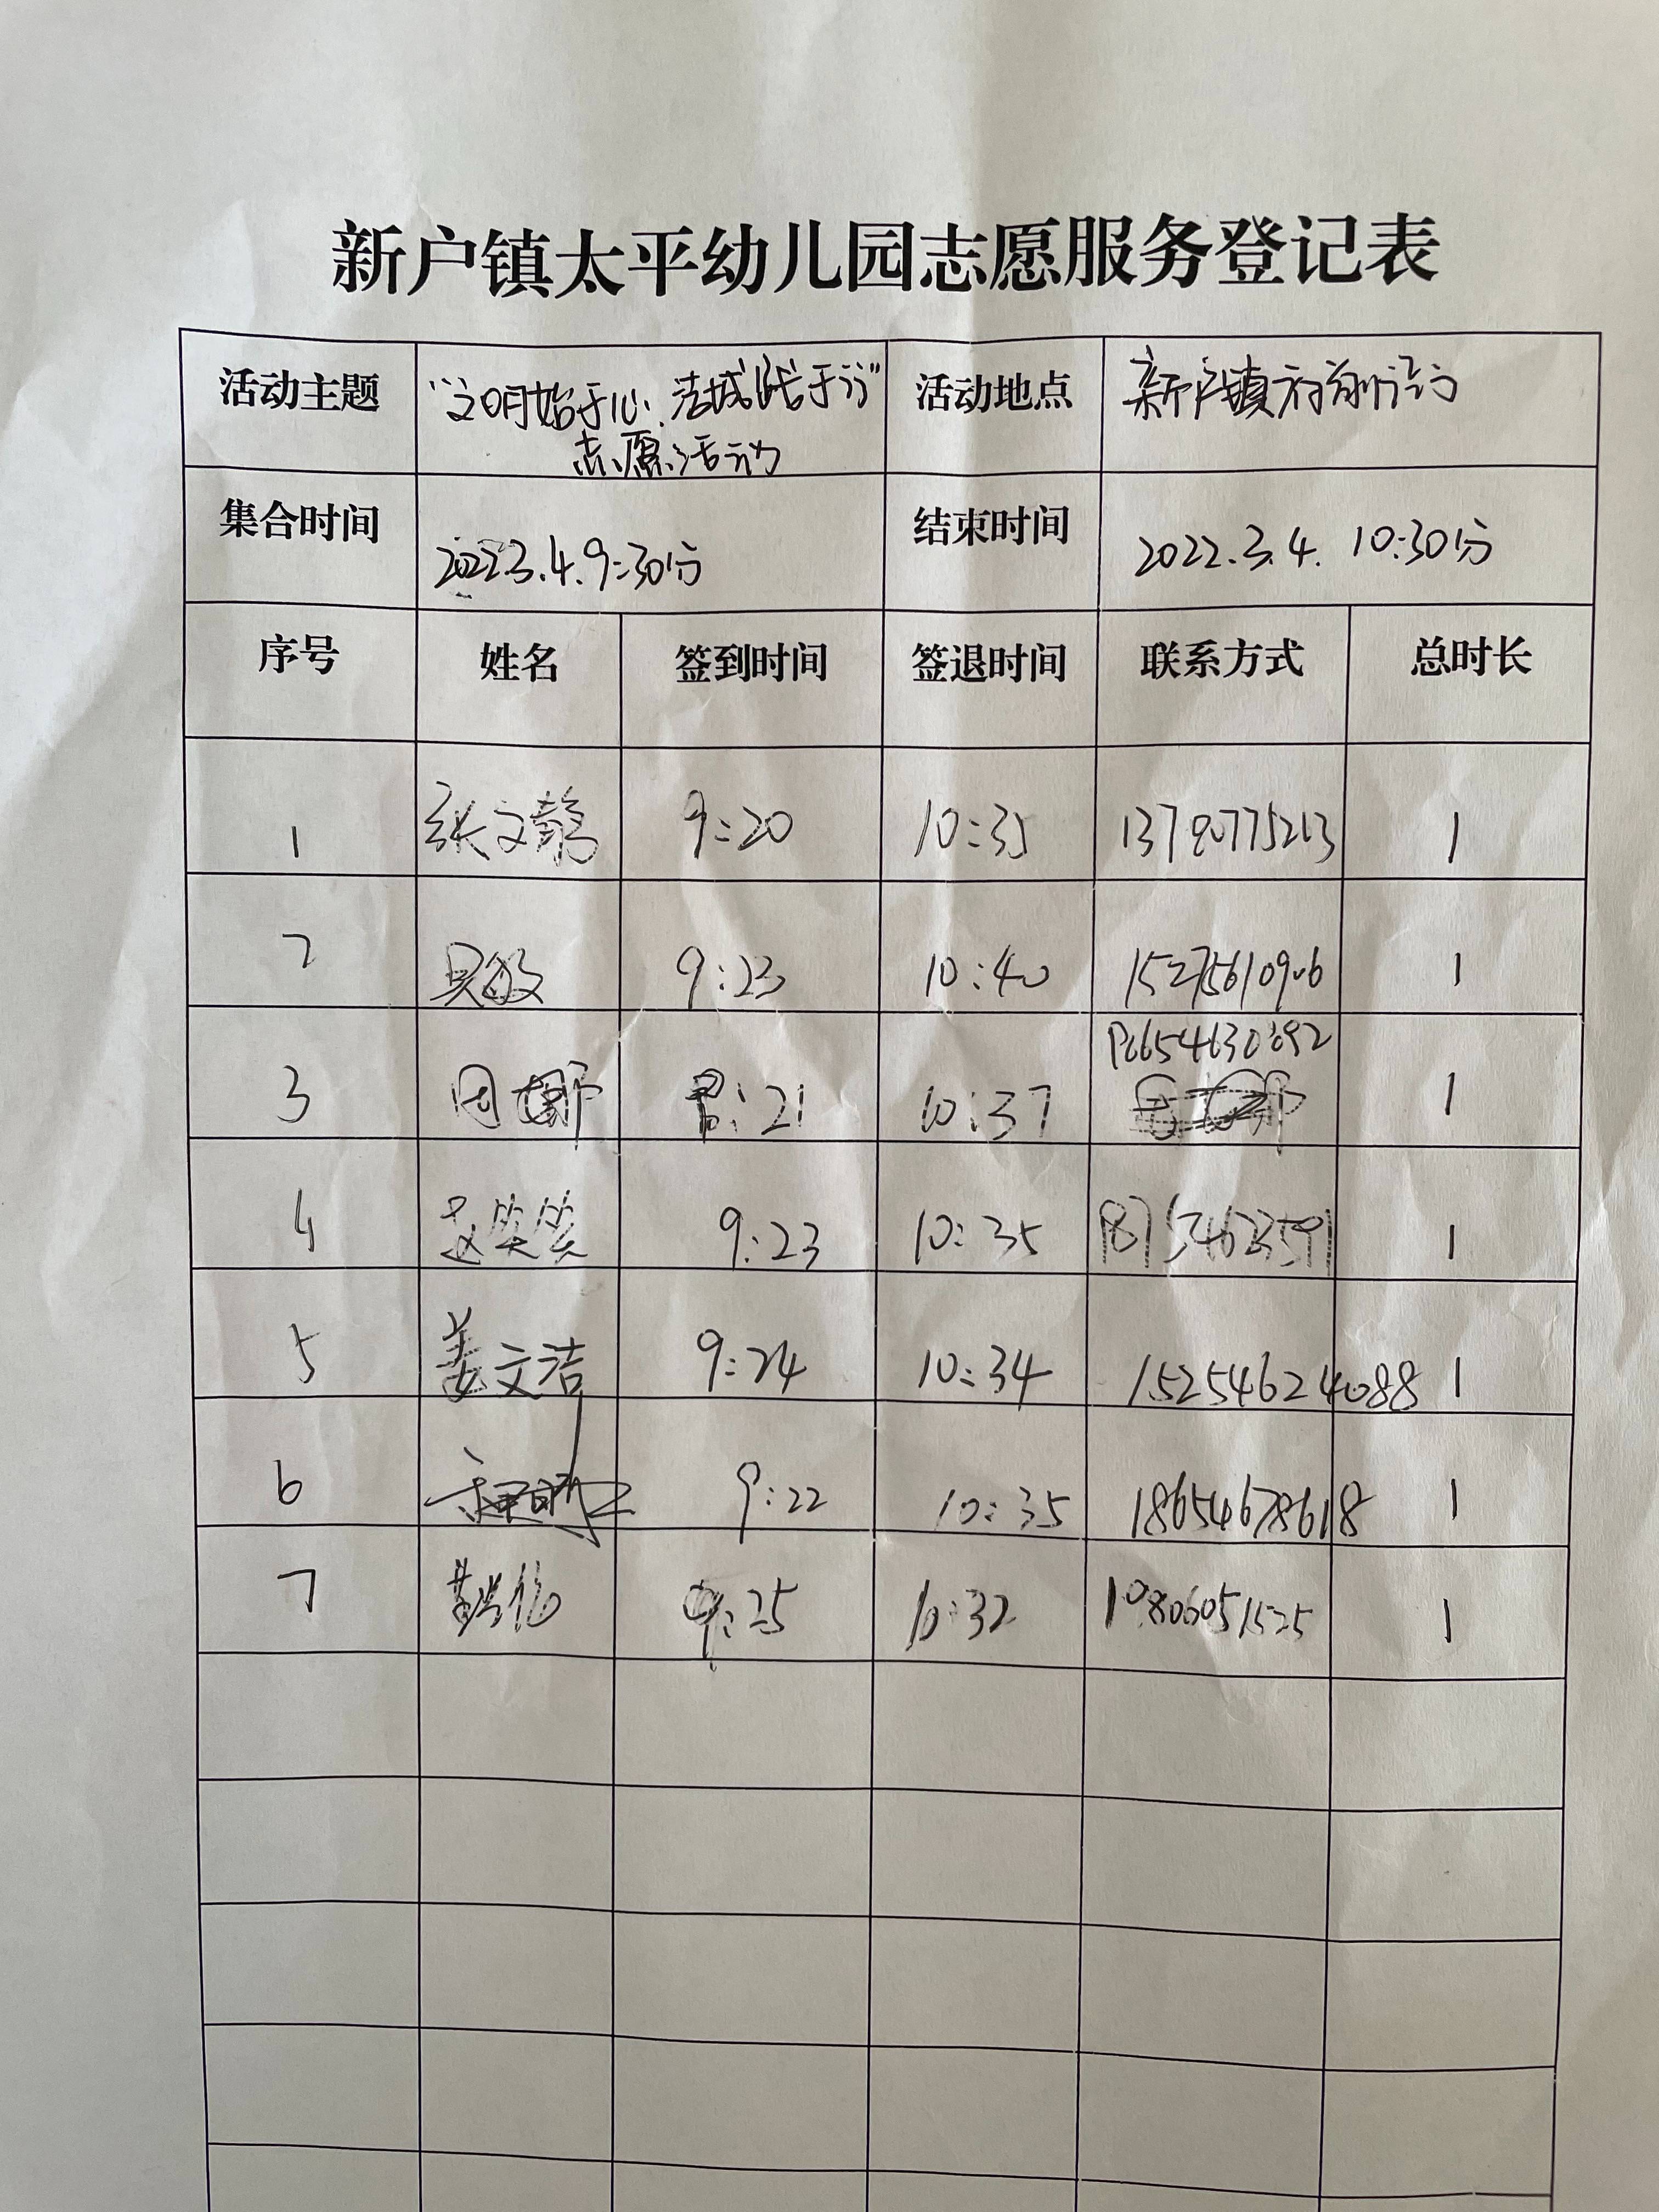 新户镇太平幼儿园志愿服务登记表
活动主题 "文明始于心、洁城践于行" 活动地点 新户镇府前
志愿活动
集合时间 2022.3.4.9:30分 结束时间 2022.3.4. 10:30分
序号 姓名 签到时间 签退时间 联系方式 总时长
1 张文静 9:20 10:35 1
2 9:23 10:40 1
3 :21 10:37 1
4 赵笑笑 9:23 10:35 187154623591 1
5 姜文洁 9:24 10:34 15254624088 1
6 9:22 10:35 18654678618 1
7 9:25 10:32 1